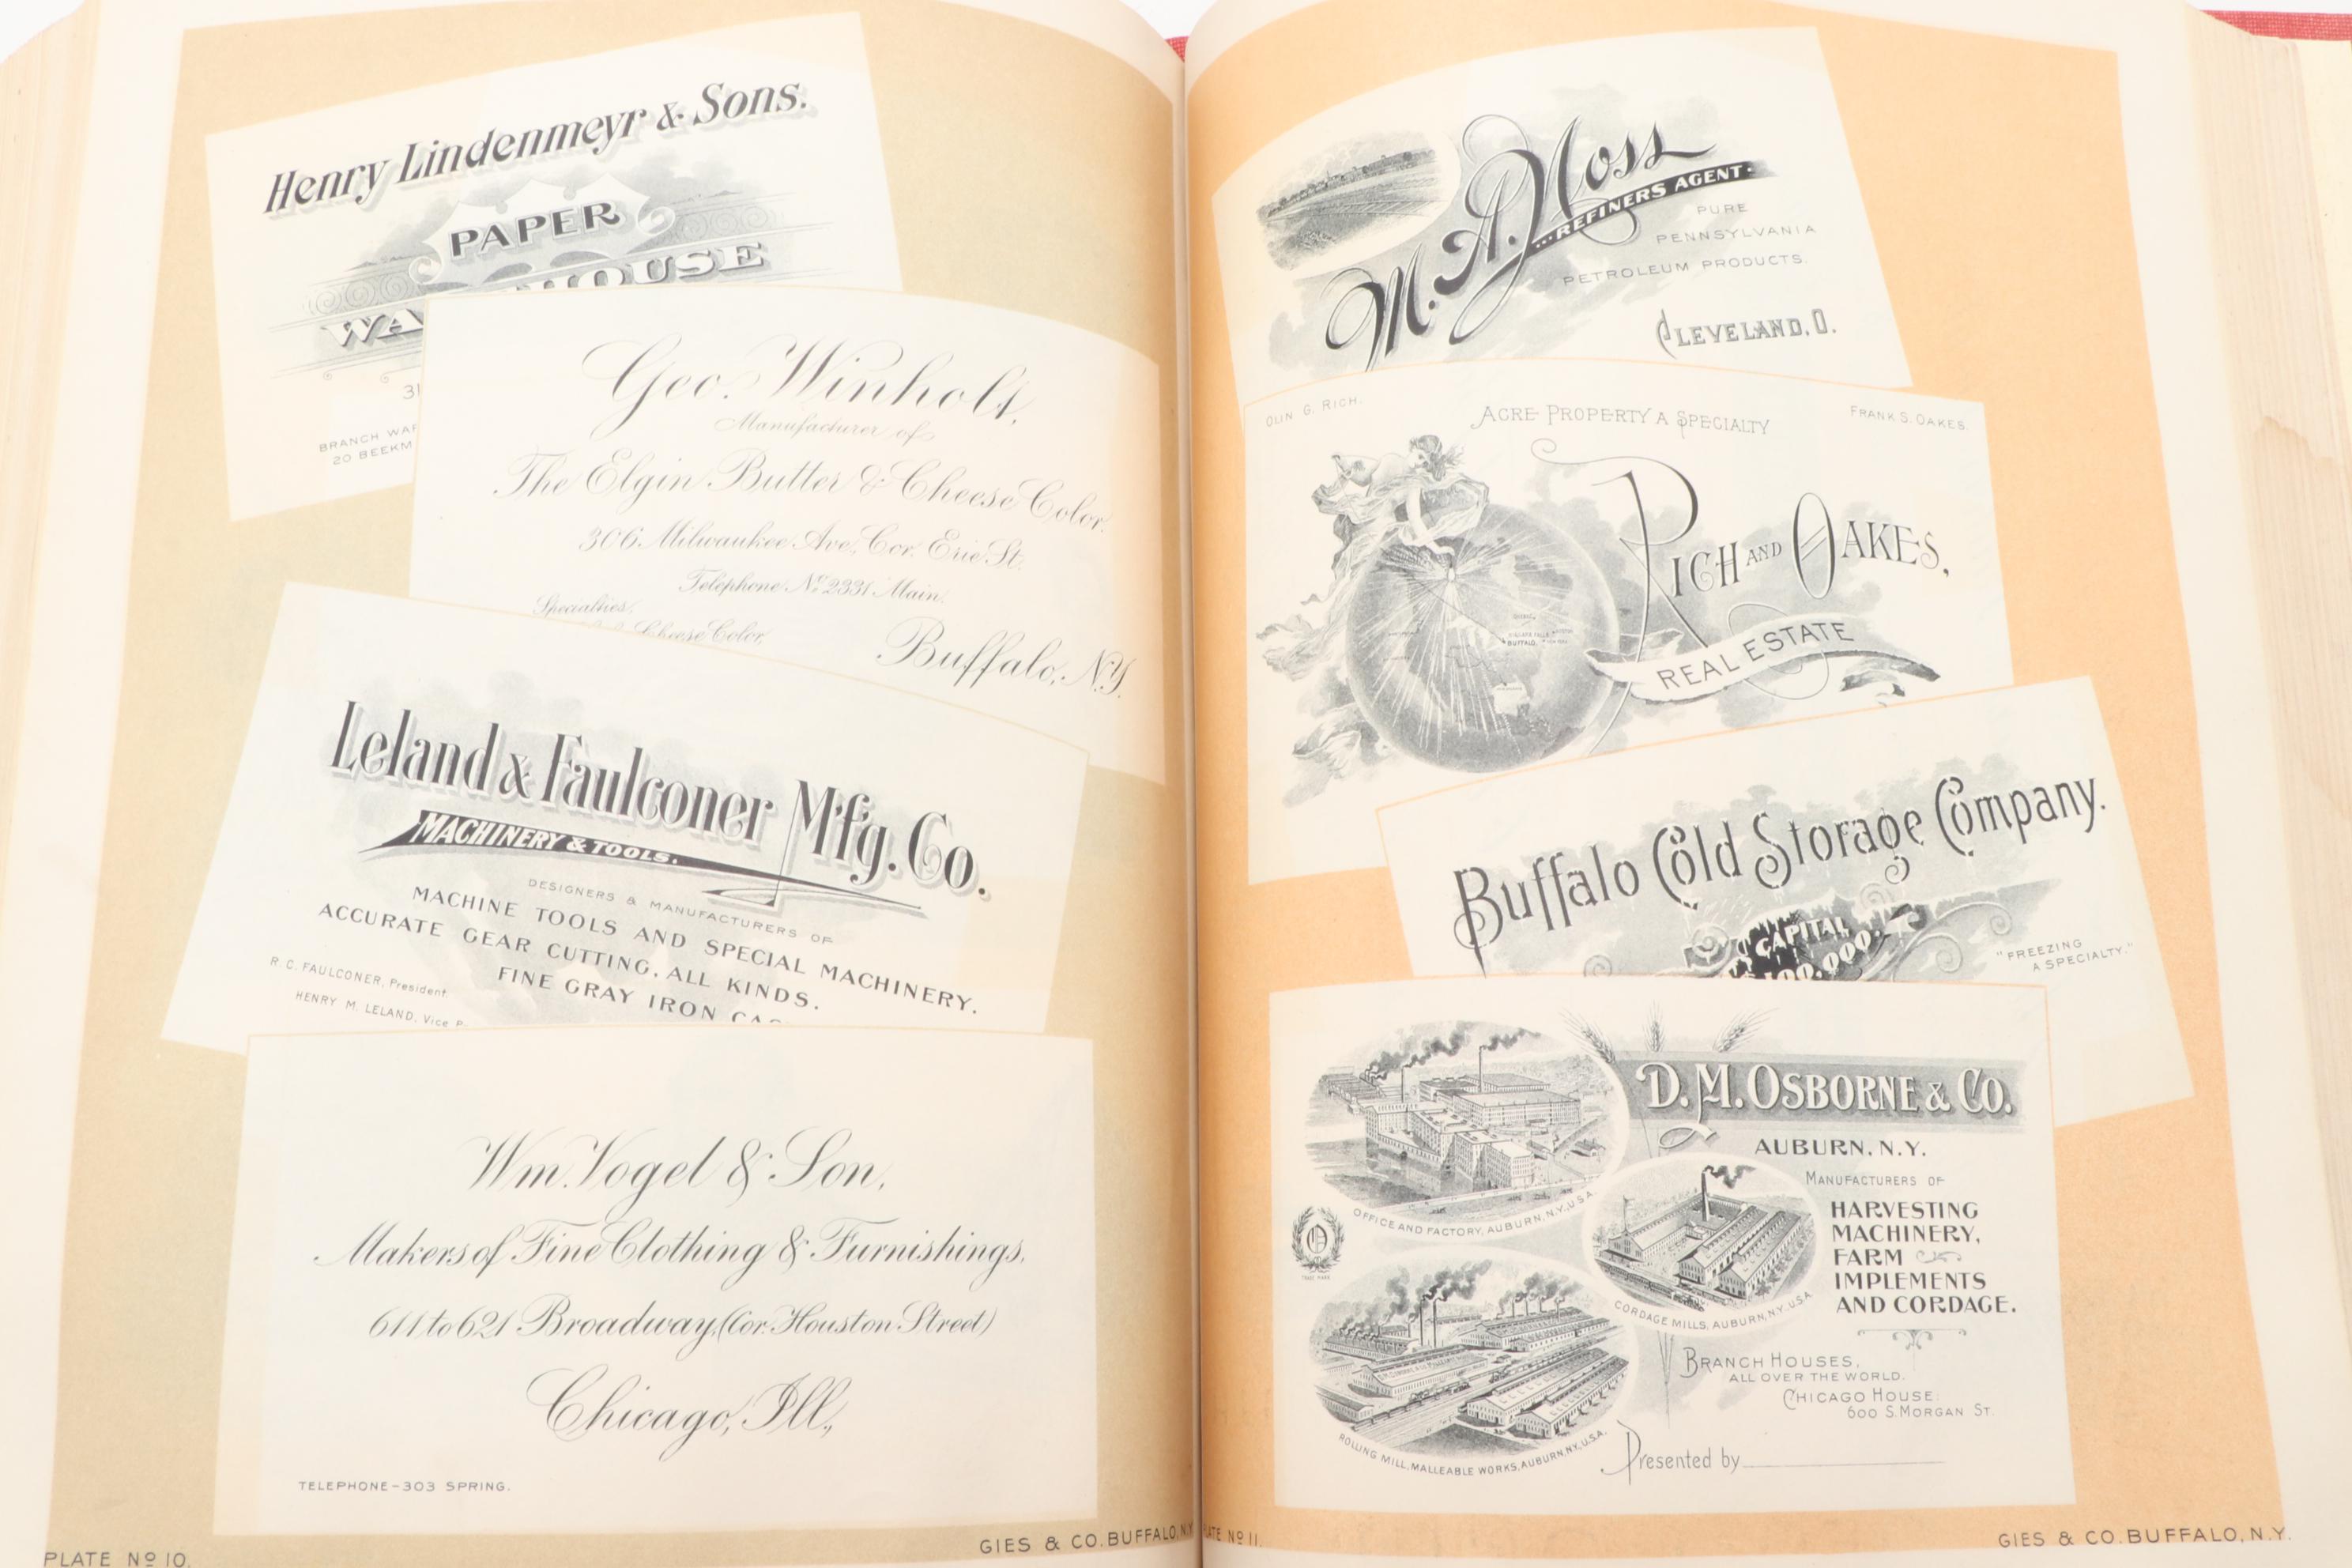 Henry Lindenmeyr & Sons.
PAPER
BRANCH
20 BEEKM
Geo. Winholt,
Manufacturer of
The Elgin Butter & Cheese Color.
306 Milwaukee Ave, Cor. Erie St.
Telephone No. 2331 Main.
Specialties,
Cheese Color,
Buffalo, N.Y.
Leland & Faulconer M'f'g. Co.
MACHINERY & TOOLS.
DESIGNERS & MANUFACTURERS OF
MACHINE TOOLS AND SPECIAL MACHINERY.
ACCURATE GEAR CUTTING, ALL KINDS.
FINE GRAY IRON
R. C. FAULCONER, President.
HENRY M. LELAND, Vice P
Wm. Vogel & Son,
Makers of Fine Clothing & Furnishings,
611 to 621 Broadway, (Cor. Houston Street)
Chicago, Ill.,
TELEPHONE-303 SPRING.
PLATE No 10.
GIES & CO. BUFFALO, N.Y.
M. A. Moss
...REFINERS AGENT.
PURE
PENNSYLVANIA
PETROLEUM PRODUCTS.
CLEVELAND, O.
OLIN G. RICH.
ACRE PROPERTY A SPECIALTY
FRANK S. OAKES.
RICH AND OAKES,
BUFFALO,
REAL ESTATE
Buffalo Cold Storage Company.
CAPITAL
"FREEZING
A SPECIALTY."
D. M. OSBORNE & CO.
AUBURN, N.Y.
MANUFACTURERS OF
HARVESTING
MACHINERY,
FARM
IMPLEMENTS
AND CORDAGE.
OFFICE AND FACTORY, AUBURN, N.Y, U.S.A.
O
TRADE MARK
CORDAGE MILLS, AUBURN, N.Y. U.S.A.
ROLLING MILL, MALLEABLE WORKS, AUBURN, N.Y, U.S.A.
BRANCH HOUSES,
ALL OVER THE WORLD.
CHICAGO HOUSE:
600 S. MORGAN ST.
Presented by
PLATE No 11.
GIES & CO. BUFFALO, N.Y.